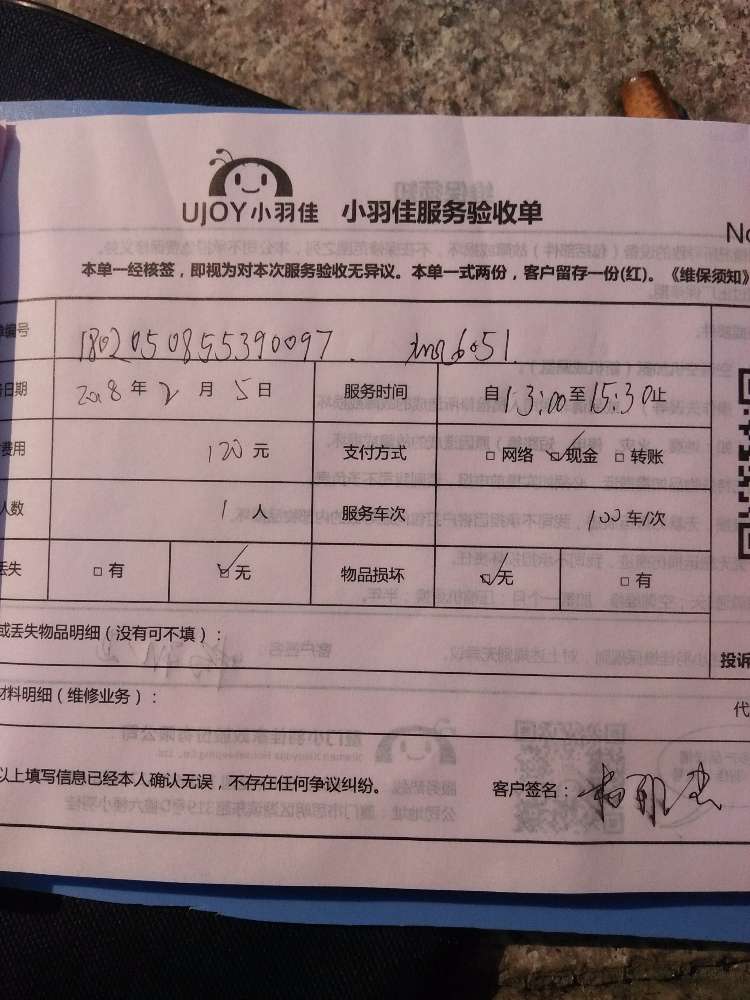 UJOY小羽佳 小羽佳服务验收单
No
本单一经核签，即视为对本次服务验收无异议。本单一式两份，客户留存一份(红)。《维保须知》
编号 1802050855390097
日期 2018年2月5日 服务时间 自13:00至15:30止
费用 120元 支付方式 □网络 ☑现金 □转账
人数 1人 服务车次 100车/次
丢失 □有 ☑无 物品损坏 ☑无 □有
或丢失物品明细（没有可不填）：
投诉
材料明细（维修业务）：
代
以上填写信息已经本人确认无误，不存在任何争议纠纷。 客户签名：